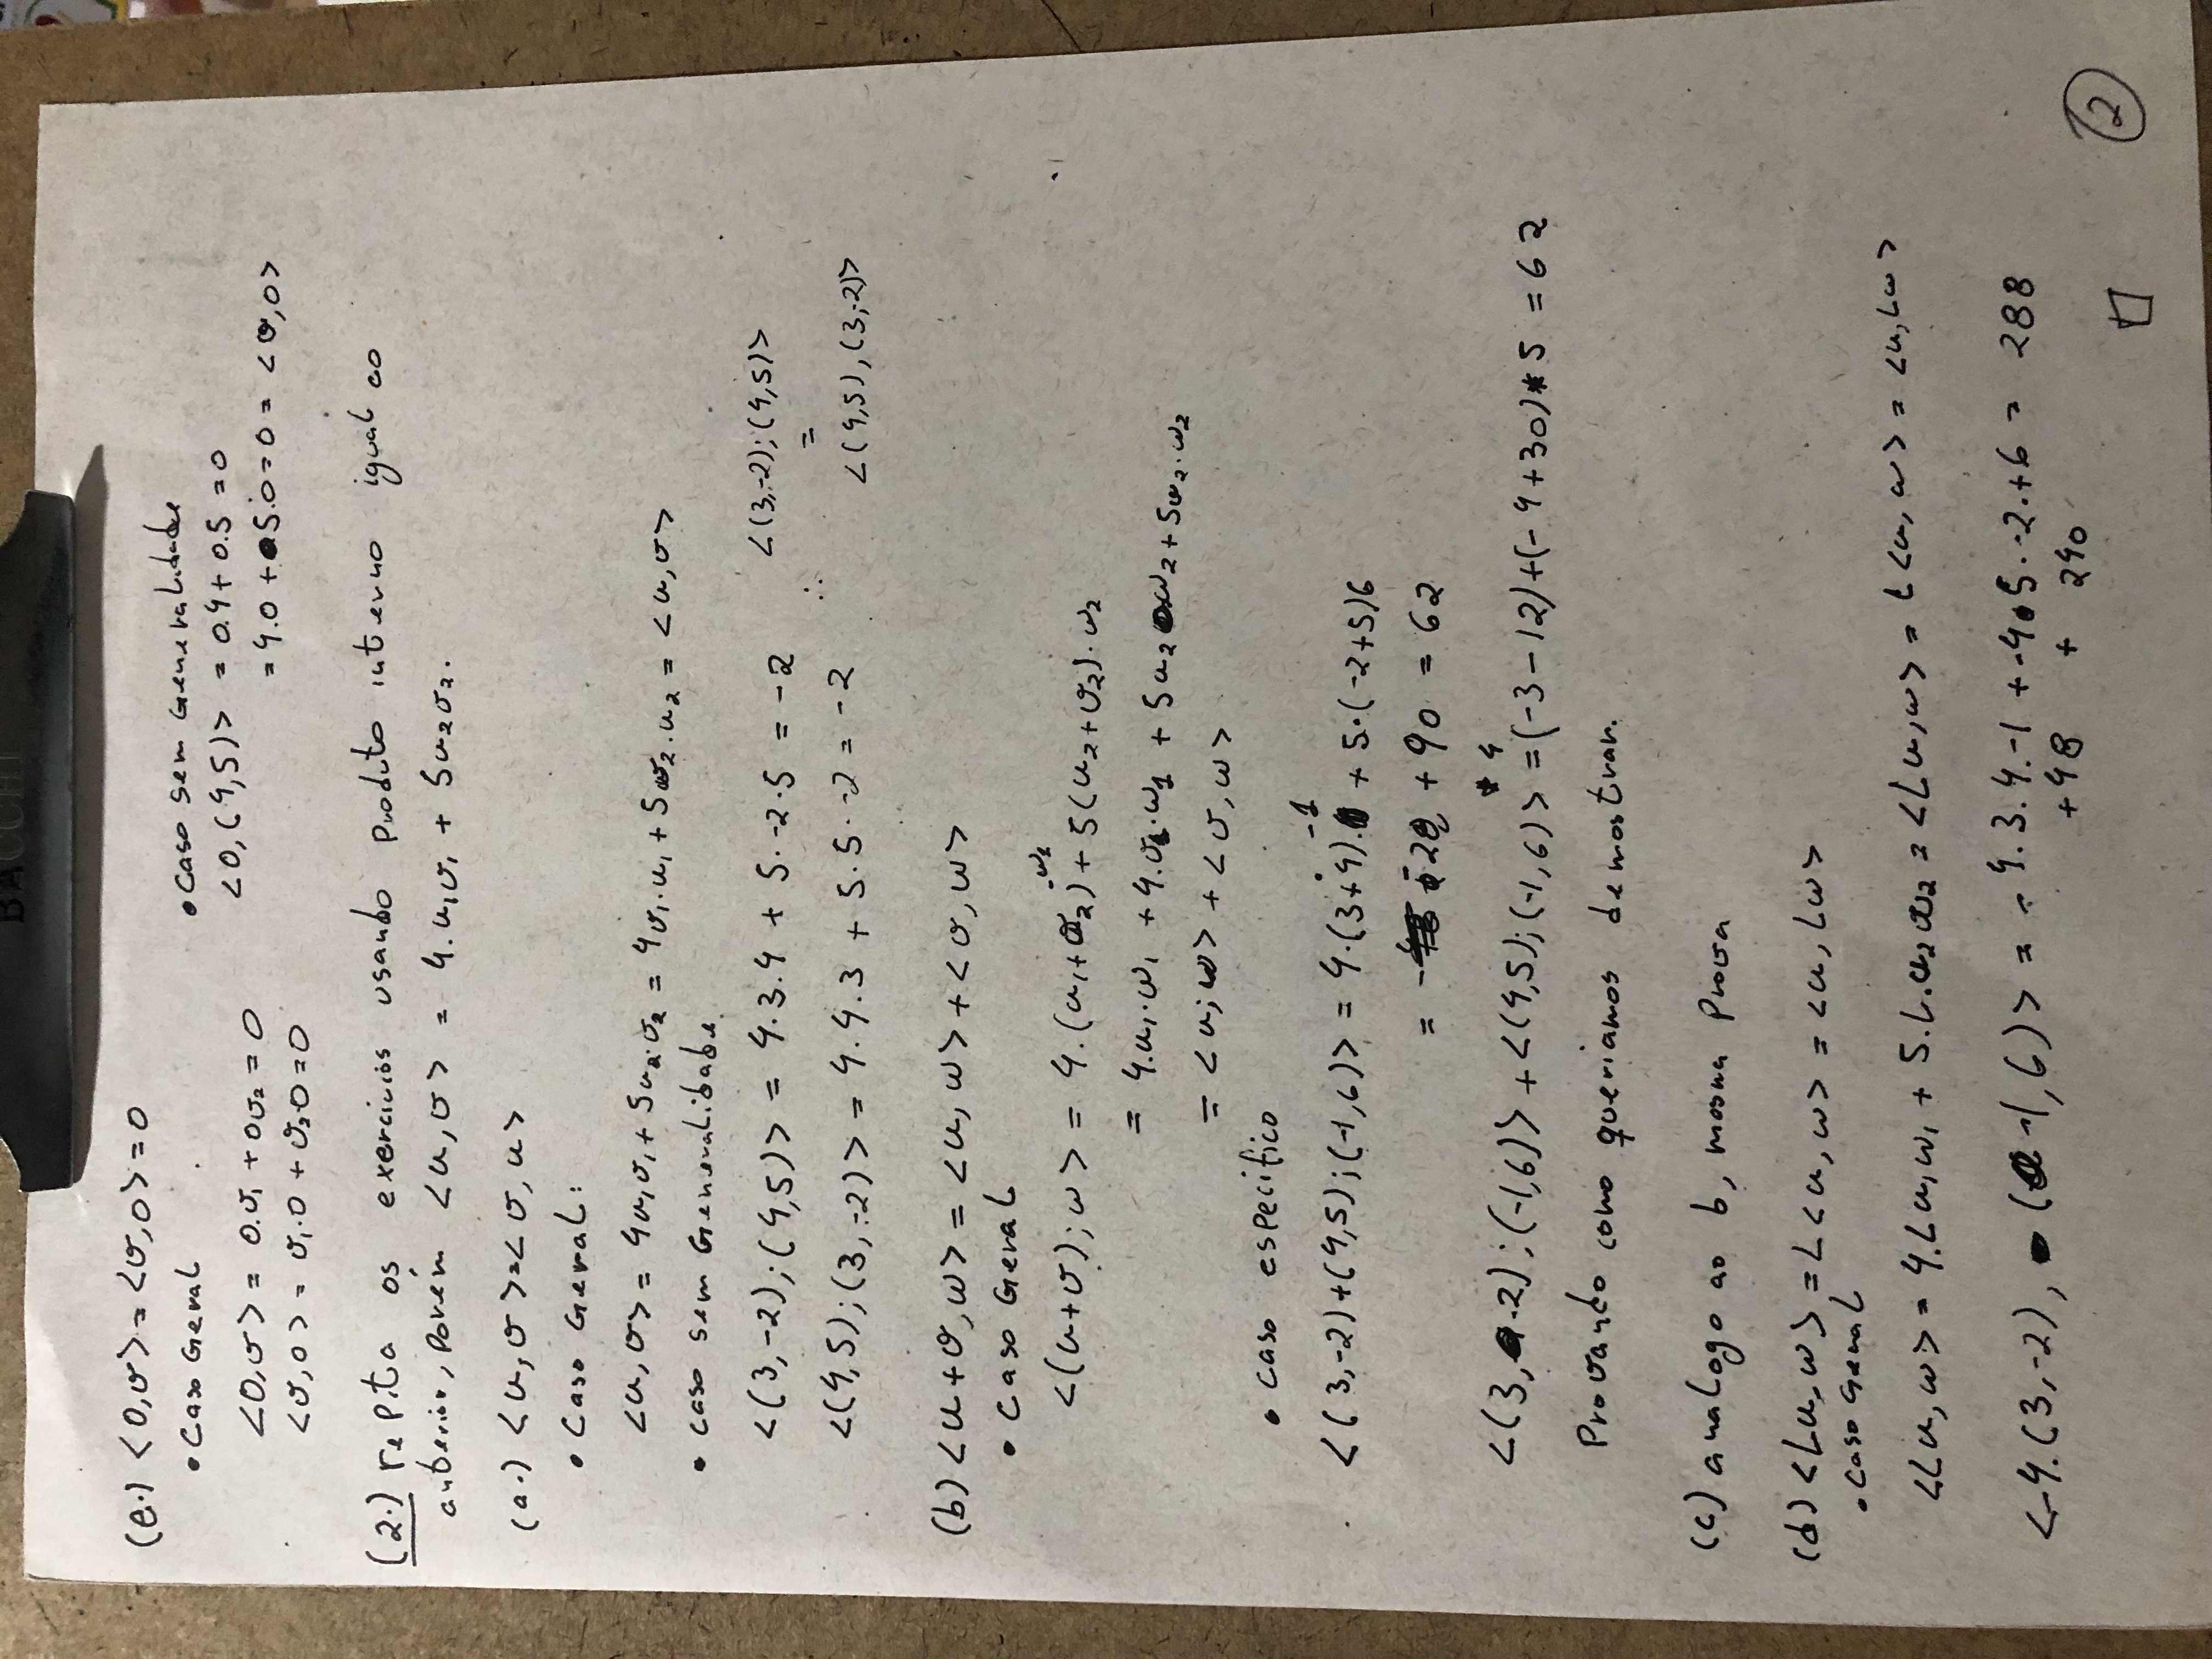 BACCHI
(e.) <0,v> = <v,0> = 0
• Caso Geral
<0,v> = 0.v₁ + 0v₂ = 0
<v,0> = v₁.0 + v₂.0 = 0
• Caso sem Generalidade
<0,(4,5)> = 0.4 + 0.5 = 0
= 4.0 + 5.0 = 0 = <v,0>
(2.) repita os exercicios usando Produto interno igual ao
anterior, Porém <u,v> = 4.u₁v₁ + 5u₂v₂.
(a.) <u,v> = <v,u>
• Caso Geral:
<u,v> = 4u₁v₁ + 5u₂.v₂ = 4v₁.u₁ + 5v₂.u₂ = <u,v>
• caso sem Generalidade
<(3,-2);(4,5)> = 4.3.4 + 5.-2.5 = -2
<(4,5);(3,-2)> = 4.4.3 + 5.5.-2 = -2
∴ <(3,-2);(4,5)>
=
<(4,5),(3,-2)>
(b) <u+v,w> = <u,w> + <v,w>
• Caso Geral
<(u+v);w> = 4.(u₁+v₂).w₁ + 5(u₂+v₂).w₂
= 4.u₁.w₁ + 4.v₁.w₁ + 5u₂.w₂ + 5v₂.w₂
= <u;w> + <v,w>
• caso especifico
<(3,-2)+(4,5);(-1,6)> = 4.(3+4).-1 + 5.(-2+5)6
= -28 + 90 = 62
<(3,-2);(-1,6)> + <(4,5);(-1,6)> = (-3-12)*4+(-4+30)*5 = 62
Provando como queriamos demostrar.
(c) analogo ao b, mesma Prova
(d) <Lu,w> = L<u,w> = <u,Lw>
• Caso Geral
<Lu,w> = 4.Lu₁w₁ + 5.L.u₂w₂ = <Lu,w> = L<u,w> = <u,Lw>
<-4.(3,-2), (-1,6)> = -4.3.4.-1 + -4.5.-2.+6 = 288
+48 + 240
2